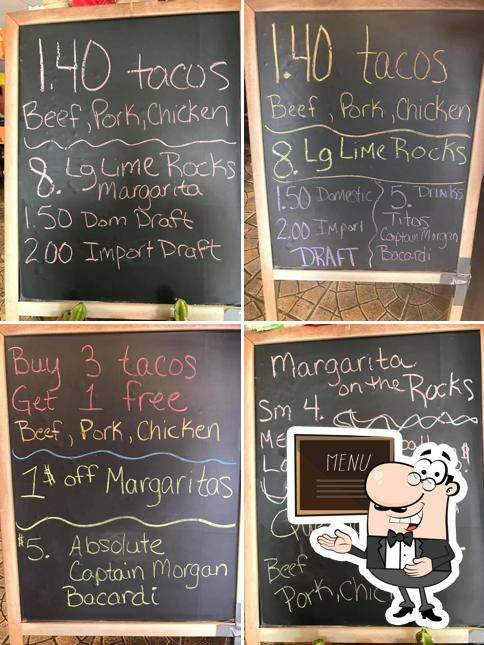 1.40 tacos
Beef, Pork, Chicken
8. Lg Lime Rocks
Margarita
1.50 Dom Draft
2.00 Import Draft
1.40 tacos
Beef, Pork, Chicken
8. Lg Lime Rocks
1.50 Domestic
2.00 Import
DRAFT
5. Drinks
Titos
Captain Morgan
Bacardi
Buy 3 tacos
Get 1 free
Beef, Pork, Chicken
1$ off Margaritas
$5. Absolute
Captain Morgan
Bacardi
Margarita
on the Rocks
Sm 4.
MENU
Beef
Pork,